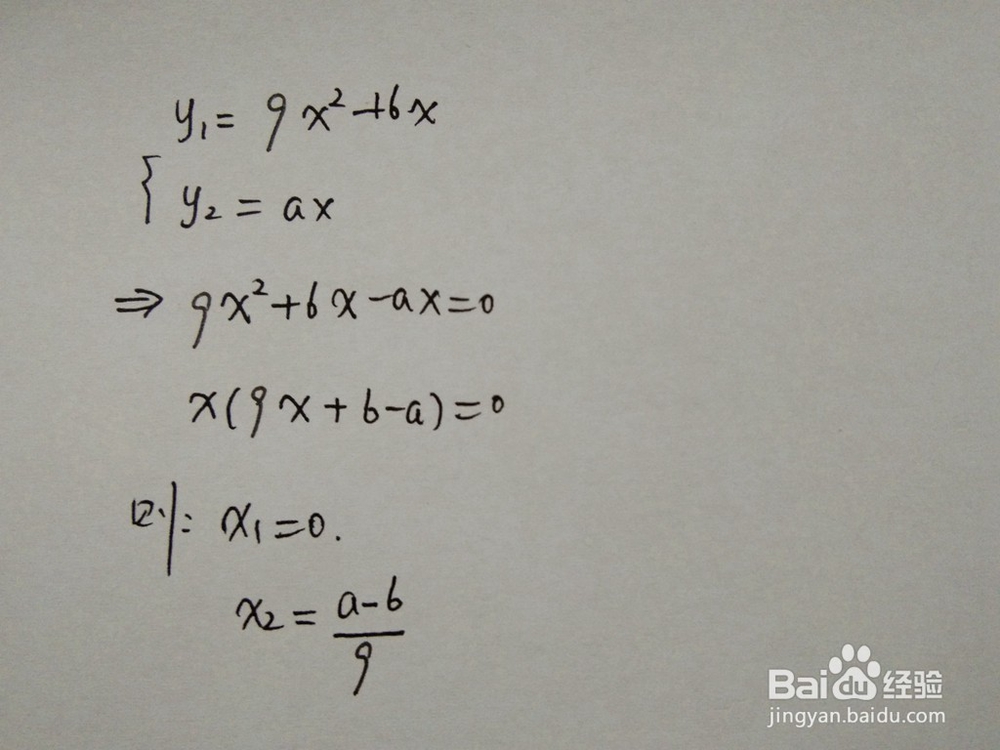 y₁ = 9x² + 6x
{ y₂ = ax
⇒ 9x² + 6x - ax = 0
x(9x + 6 - a) = 0
则: x₁ = 0.
x₂ = (a - 6)/9
Baidu 经验
jingyan.baidu.com